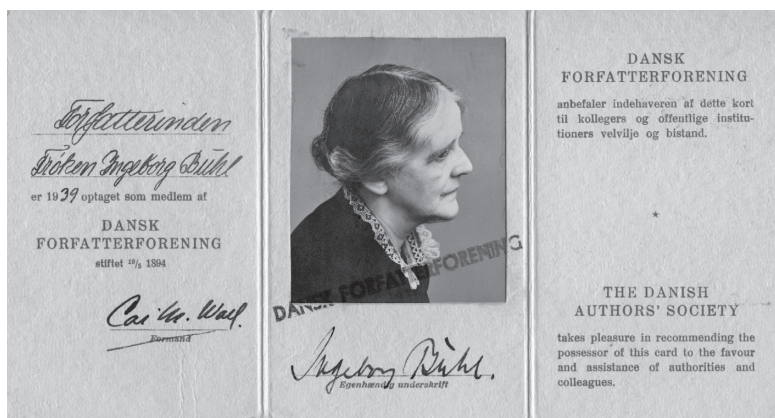 Forfatterinden
Frøken Ingeborg Buhl
er 1939 optaget som medlem af
DANSK
FORFATTERFORENING
stiftet ¹⁹/₅ 1894
Cai M. Woel.
Formand
DANSK FORFATTERFORENING
Ingeborg Buhl.
Egenhændig underskrift
DANSK
FORFATTERFORENING
anbefaler indehaveren af dette kort
til kollegers og offentlige institu-
tioners velvilje og bistand.
*
THE DANISH
AUTHORS' SOCIETY
takes pleasure in recommending the
possessor of this card to the favour
and assistance of authorities and
colleagues.